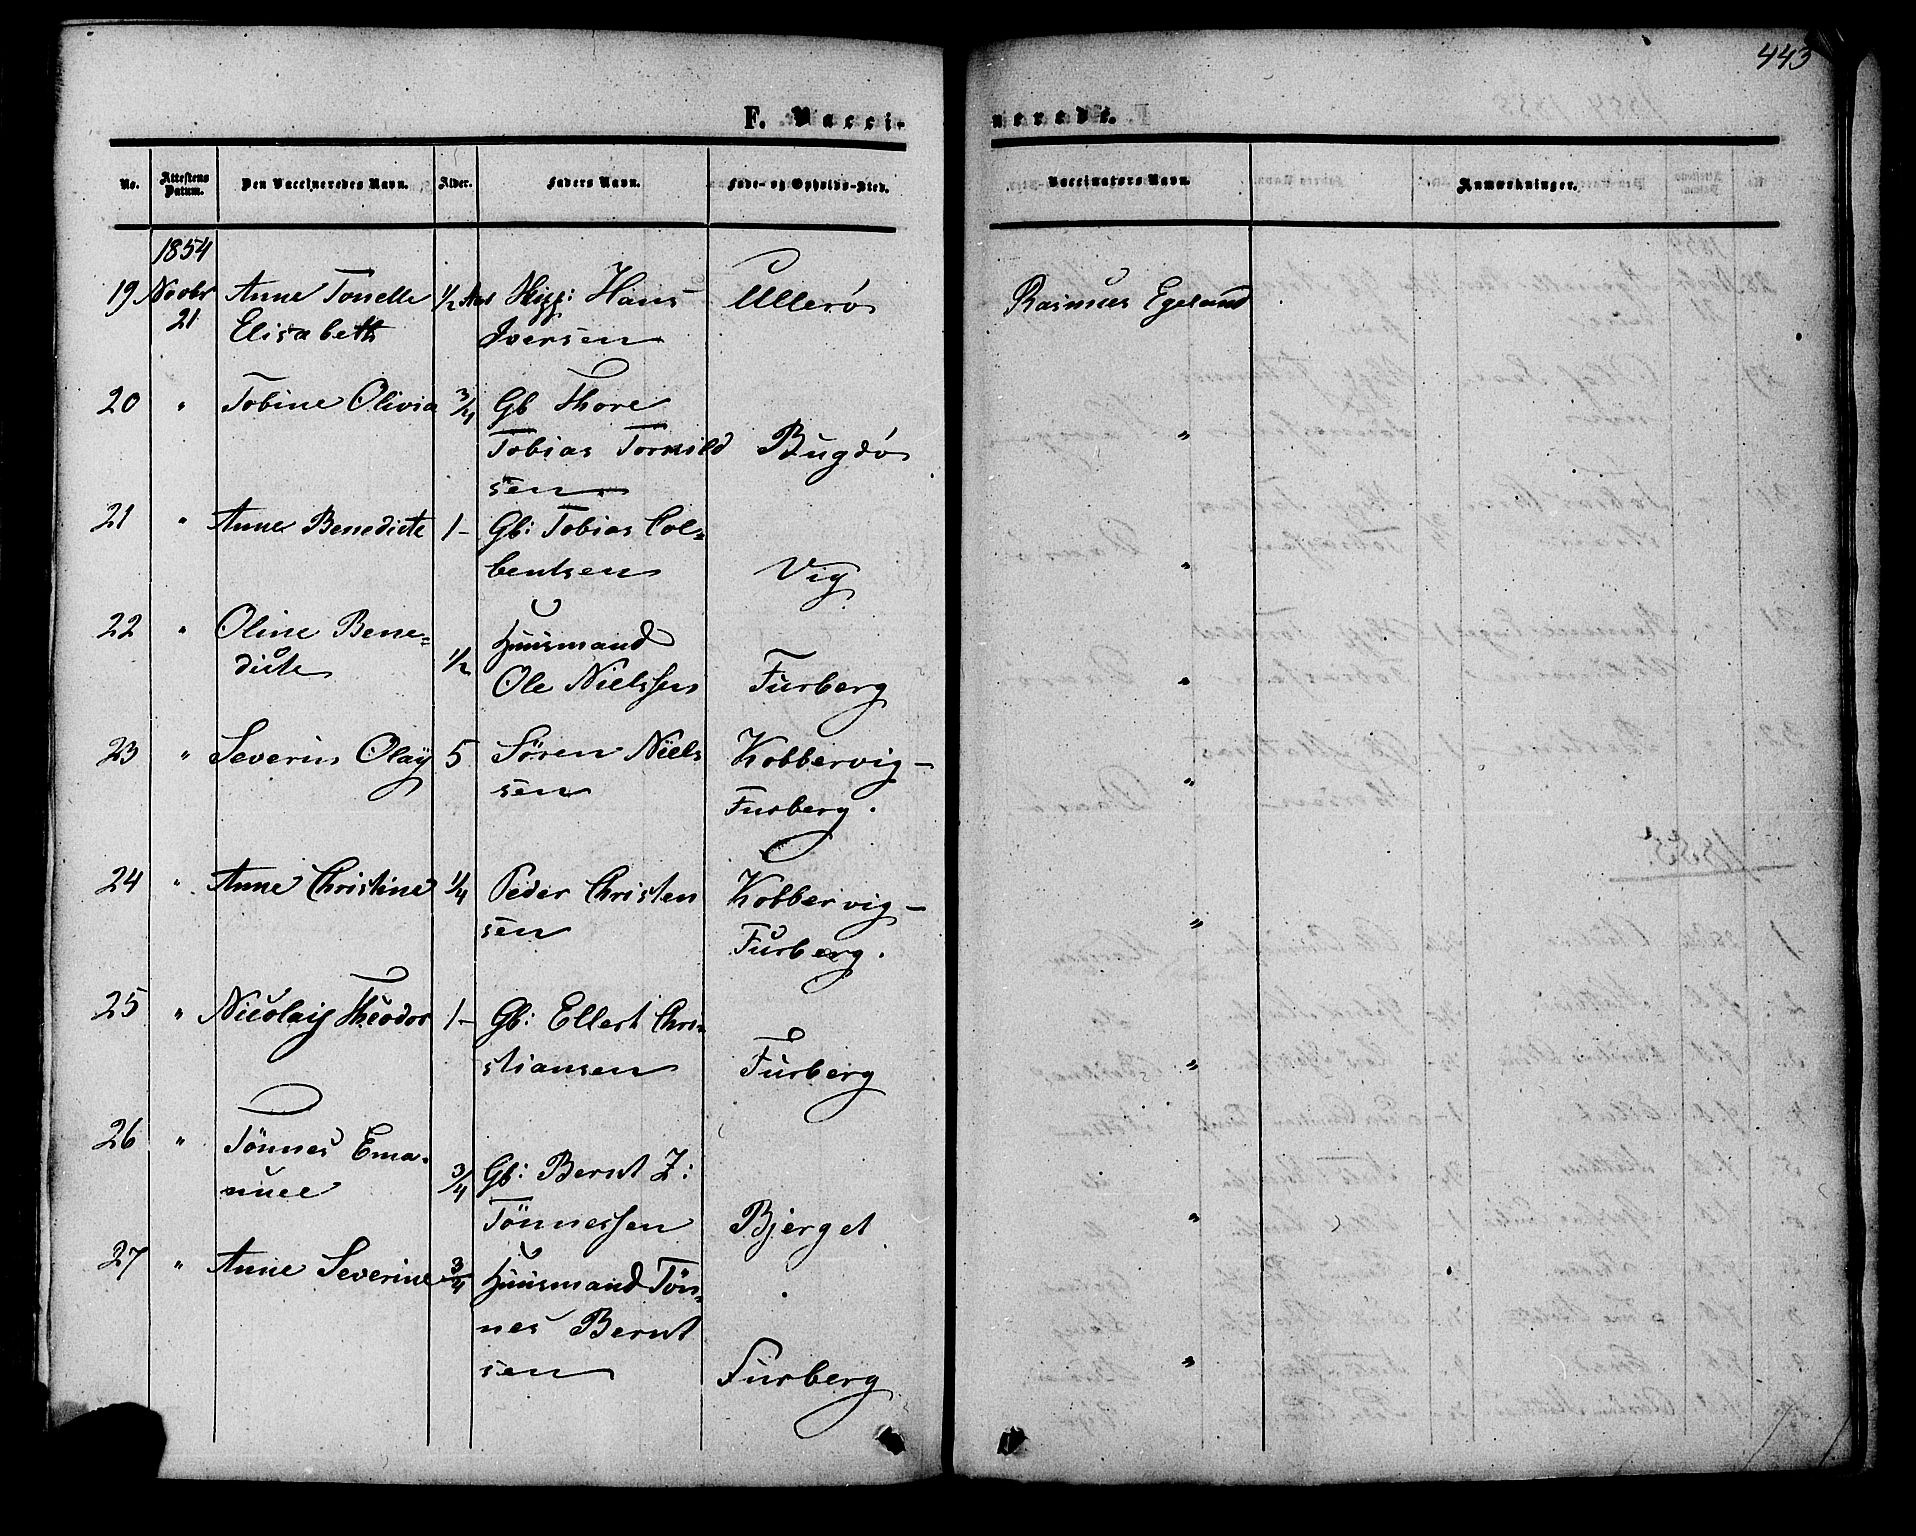 443
F. Vacci-
nerede.
No.
Attestens Datum.
Den Vaccineredes Navn.
Alder.
Faders Navn.
Føde- og Opholds-Sted.
Vaccinators Navn.
Anmærkninger.
1854
19 Novbr Anne Tonette 1/2 Aar Hans Ullerø Rasmus Egeland
21 Elisabeth Iversen
20 " Tobine Olivia 3/4 Gb Thore
Tobias Tormild Bugdø "
sen
21 " Anne Benedicte 1- Gb: Tobias Col-
bentsen Vig "
22 " Oline Bene- Huusmand
dicte 1/2 Ole Nielssen Furberg "
23 " Severin Olay 5 Søren Niels Kobbervig-
sen Furberg. "
24 " Anne Christine 1/4 Peder Christen Kobbervig-
sen Furberg. "
25 " Nicolaij Theodor 1- Gb: Ellert Chri-
stiansen Furberg "
26 " Tönnes Ema-
nuel 3/4 Gb: Bernt Z:
Tönnessen Bjerget "
27 " Anne Severine 3/4 Huusmand Tön-
nes Bernt
sen Furberg "